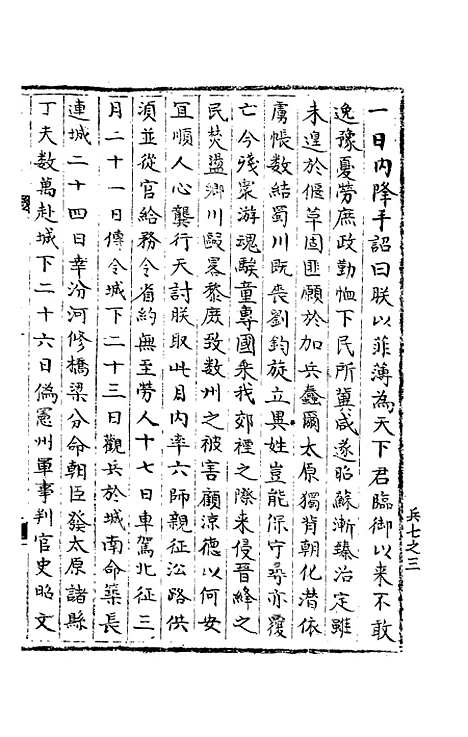 一日内降手詔曰朕以菲薄為天下君臨御以来不敢
逸豫憂勞庶政勤恤下民所冀咸遂昭蘇漸臻治定雖
未遑於偃革固匪願於加兵蠢爾太原獨背朝化潜依
虜帳数結蜀川既喪劉鈞旋立異姓豈能保守尋亦覆
亡今殘衆游魂騃童專國乘我郊禋之際来侵晉絳之
民焚盪鄉川毆畧黎庻致数州之被害顧涼德以何安
宜順人心龔行天討朕取此月内率六師親征㳂路供
湏並從官給務令省約無至勞人十七日車駕北征三
月二十一日傳令城下二十三日觀兵於城南命築長
連城二十四日幸汾河修橋梁分命朝臣發太原諸縣
丁夫数萬赴城下二十六日偽憲州軍事判官史昭文
兵七之三